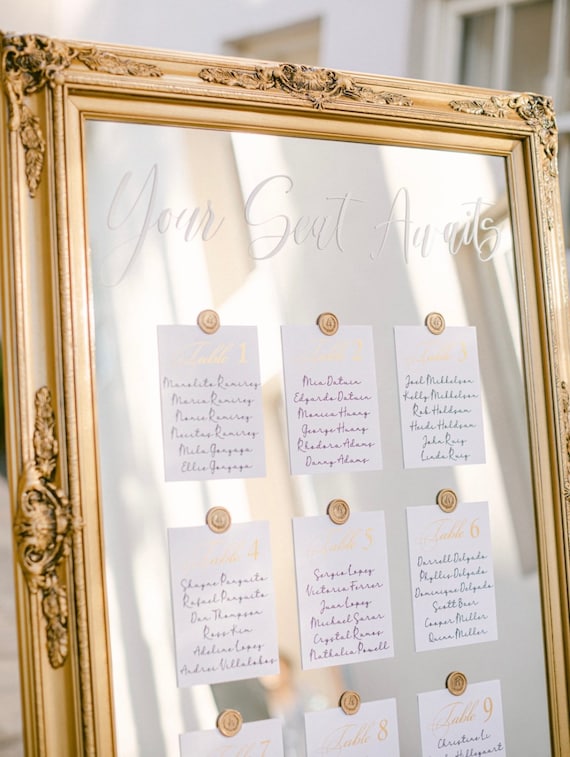 Your Seat Awaits
Table 1
Manolito Ramirez
Maria Ramirez
Marie Ramirez
Necitas Ramirez
Mila Gonzaga
Ellie Gonzaga
Table 2
Mia Datuin
Edgardo Datuin
Monica Huang
George Huang
Rhodora Adams
Danny Adams
Table 3
Joel Mikkelson
Kelly Mikkelson
Rob Haldson
Heidi Haldson
John Ruiz
Linda Ruiz
Table 4
Shayne Panguito
Rafael Panguito
Dan Thompson
Ross Kim
Adeline Lopez
Andrei Villalobos
Table 5
Sergio Lopez
Victoria Ferrer
Juan Lopez
Michael Sarar
Crystal Ramos
Nathalia Powell
Table 6
Darrell Delgado
Phyllis Delgado
Dominique Delgado
Scott Beer
Cooper Miller
Quinn Miller
Table 7
Table 8
Table 9
Christine Li